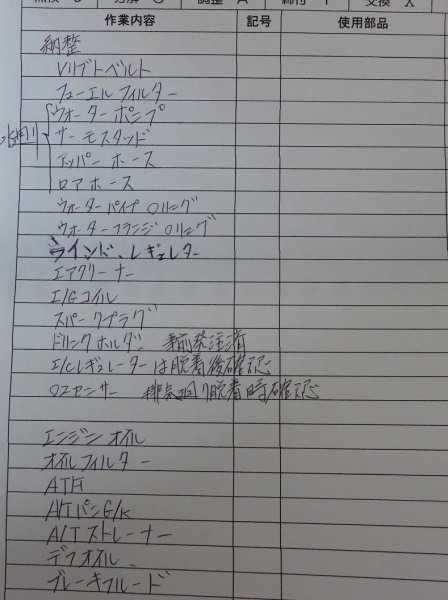 点検 分解 調整 A 締付 T 交換 X
作業内容 記号 使用部品
納整
Vリブトベルト
フューエルフィルター
ウォーターポンプ
水回り サーモスタッド
アッパーホース
ロアホース
ウォーターパイプ Oリング
ウォーターフランジ Oリング
ウインド、レギュレター
エアクリーナー
E/Gコイル
スパークプラグ
ドリンクホルダー 事前発注済
E/Cレギュレーターは脱着後確認
O2センサー 排気回り脱着時確認
エンジンオイル
オイルフィルター
ATF
A/TパンG/K
A/Tストレーナー
デフオイル、
ブレーキフルード